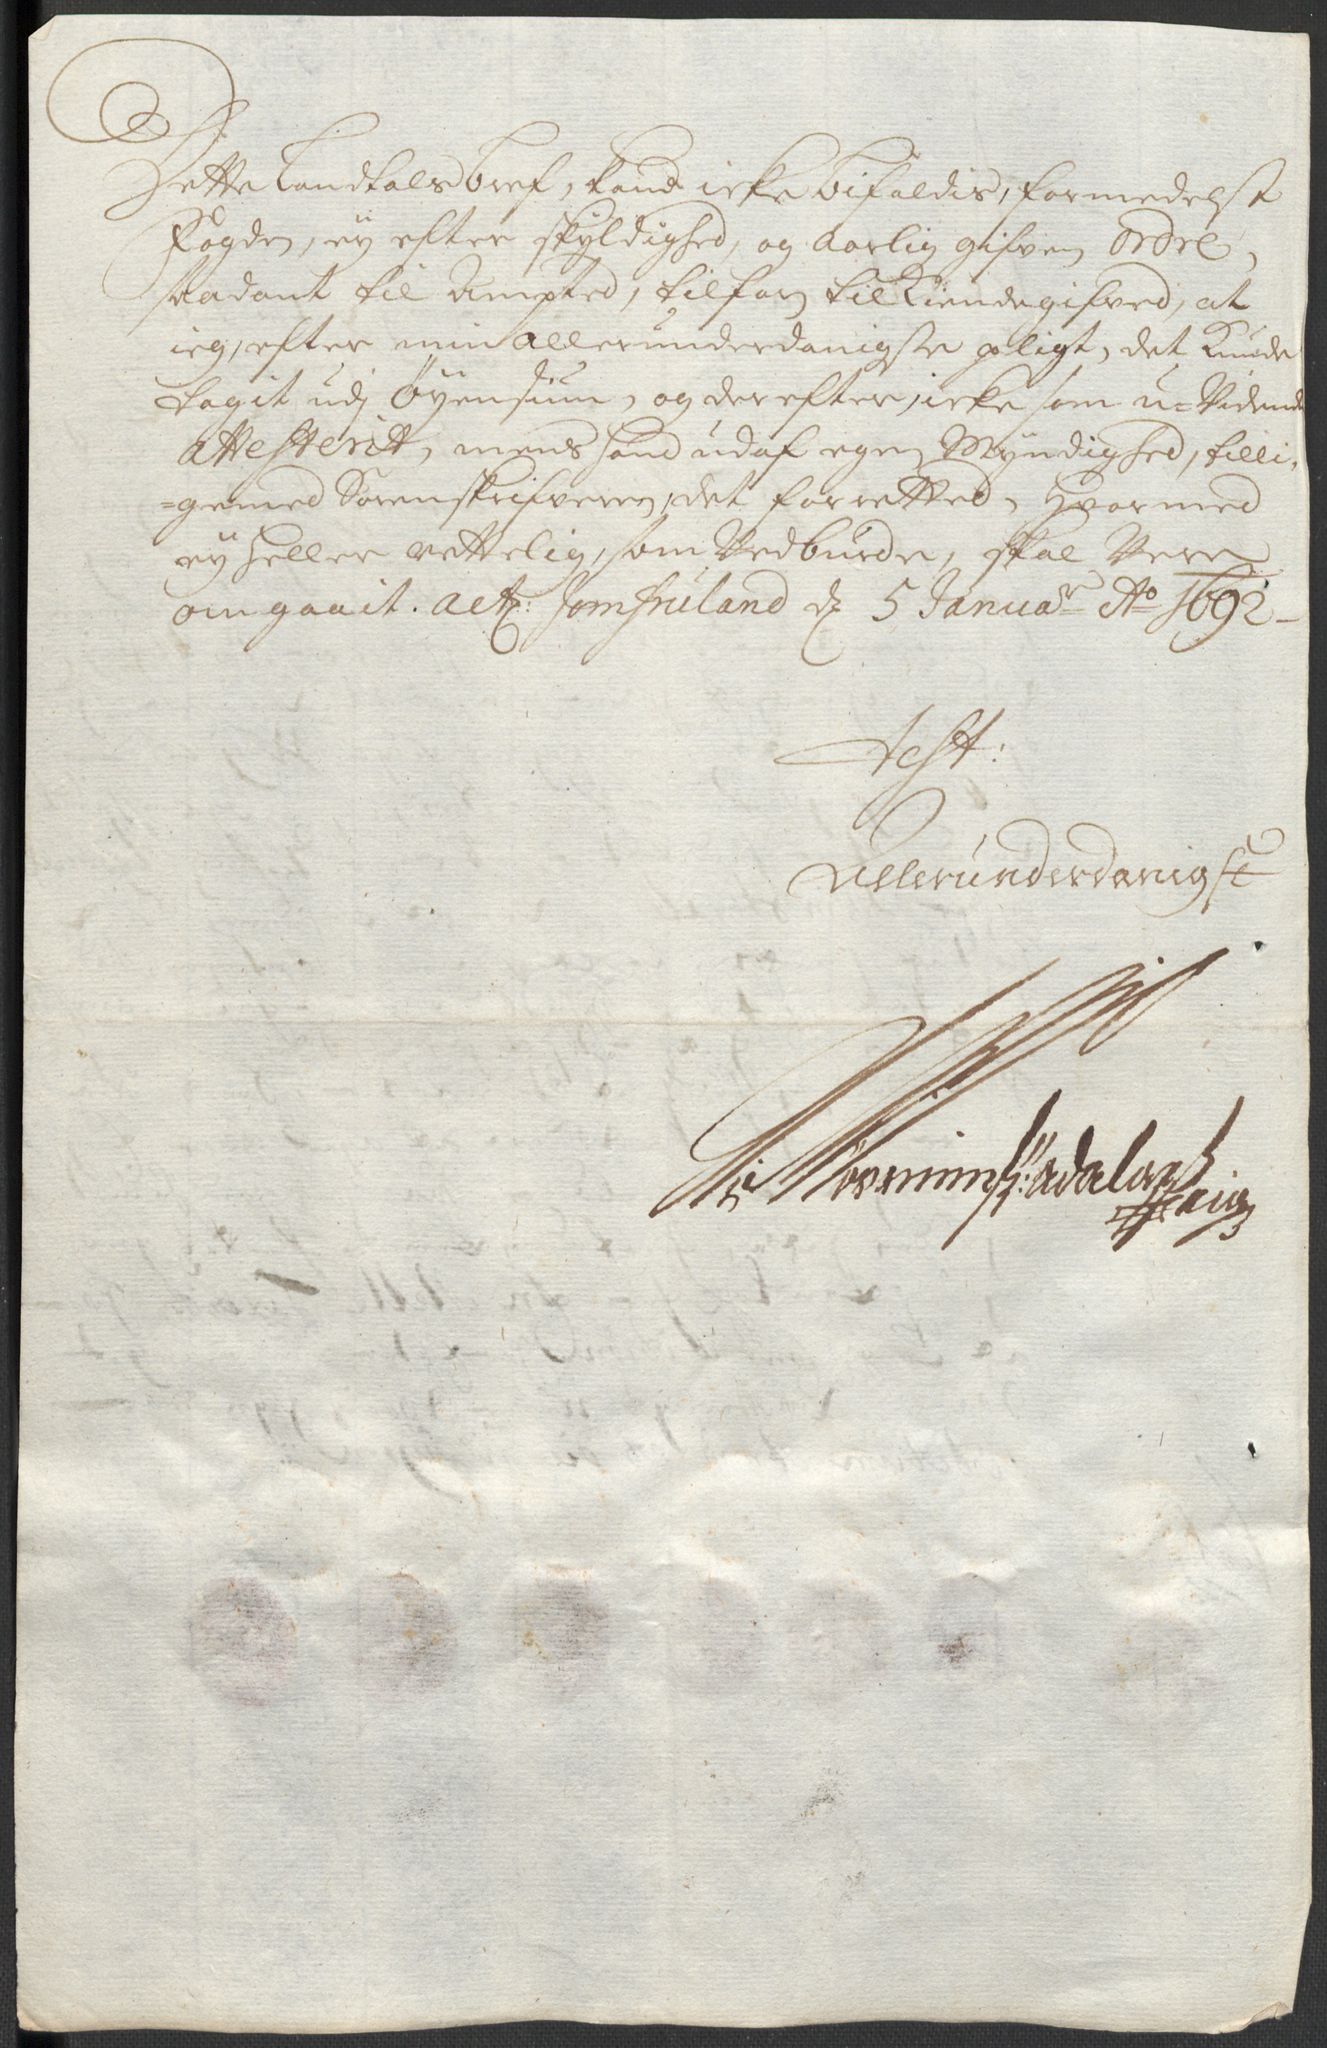 Dette Landkals bref, kand icke bifaldis, formedelst
Fogden, eÿ efter skÿldighed, og aarlig gifven Ordre,
saadant til Ampted, tilforn tilkiendegifved, at
ieg, efter min allerunderdanigste pligt, det Kunde
tagit udj Øÿensiun, og derefter, icke som u-Vidende
attesterit, mens hand udaf egen Mÿndighed, tilli-
=gemed Sorenskrifveren, det forretted, Hvormed
eÿ heller rettelig, som Vedburde, skal Vere
omgaait. Act: Jomfruland d 5 Januar Ao 1692
Test:
Allerunderdanigst